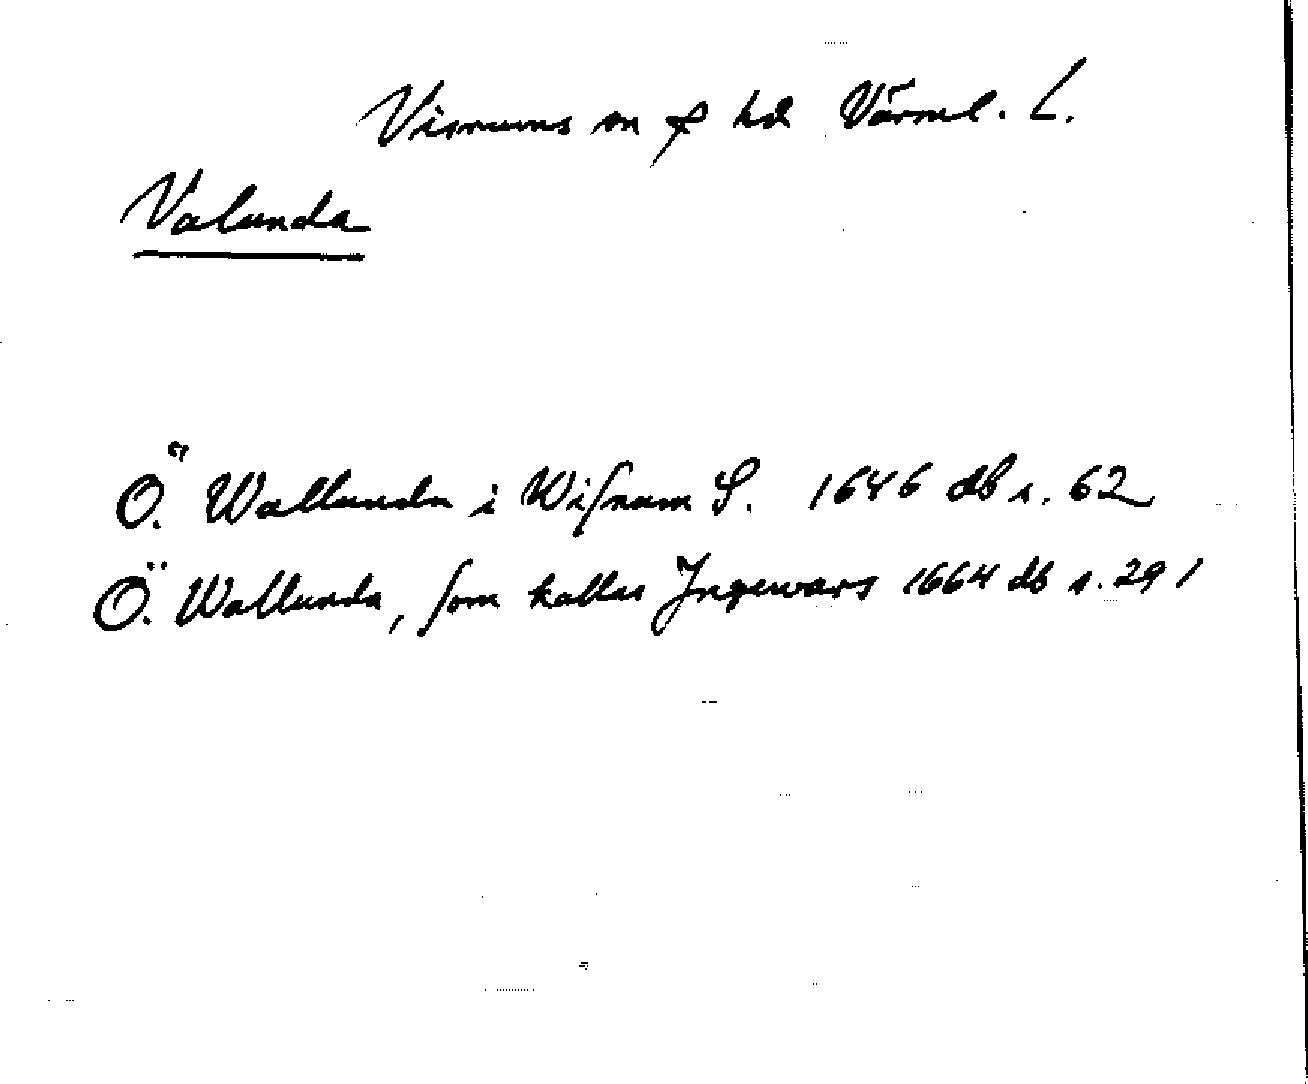 Visnums sn o hd Värml. L.
Valunda
Ö. Wallunda i Wisnum S. 1646 db s. 62
Ö. Wallunda, som kallas Jngewars 1664 db s. 291